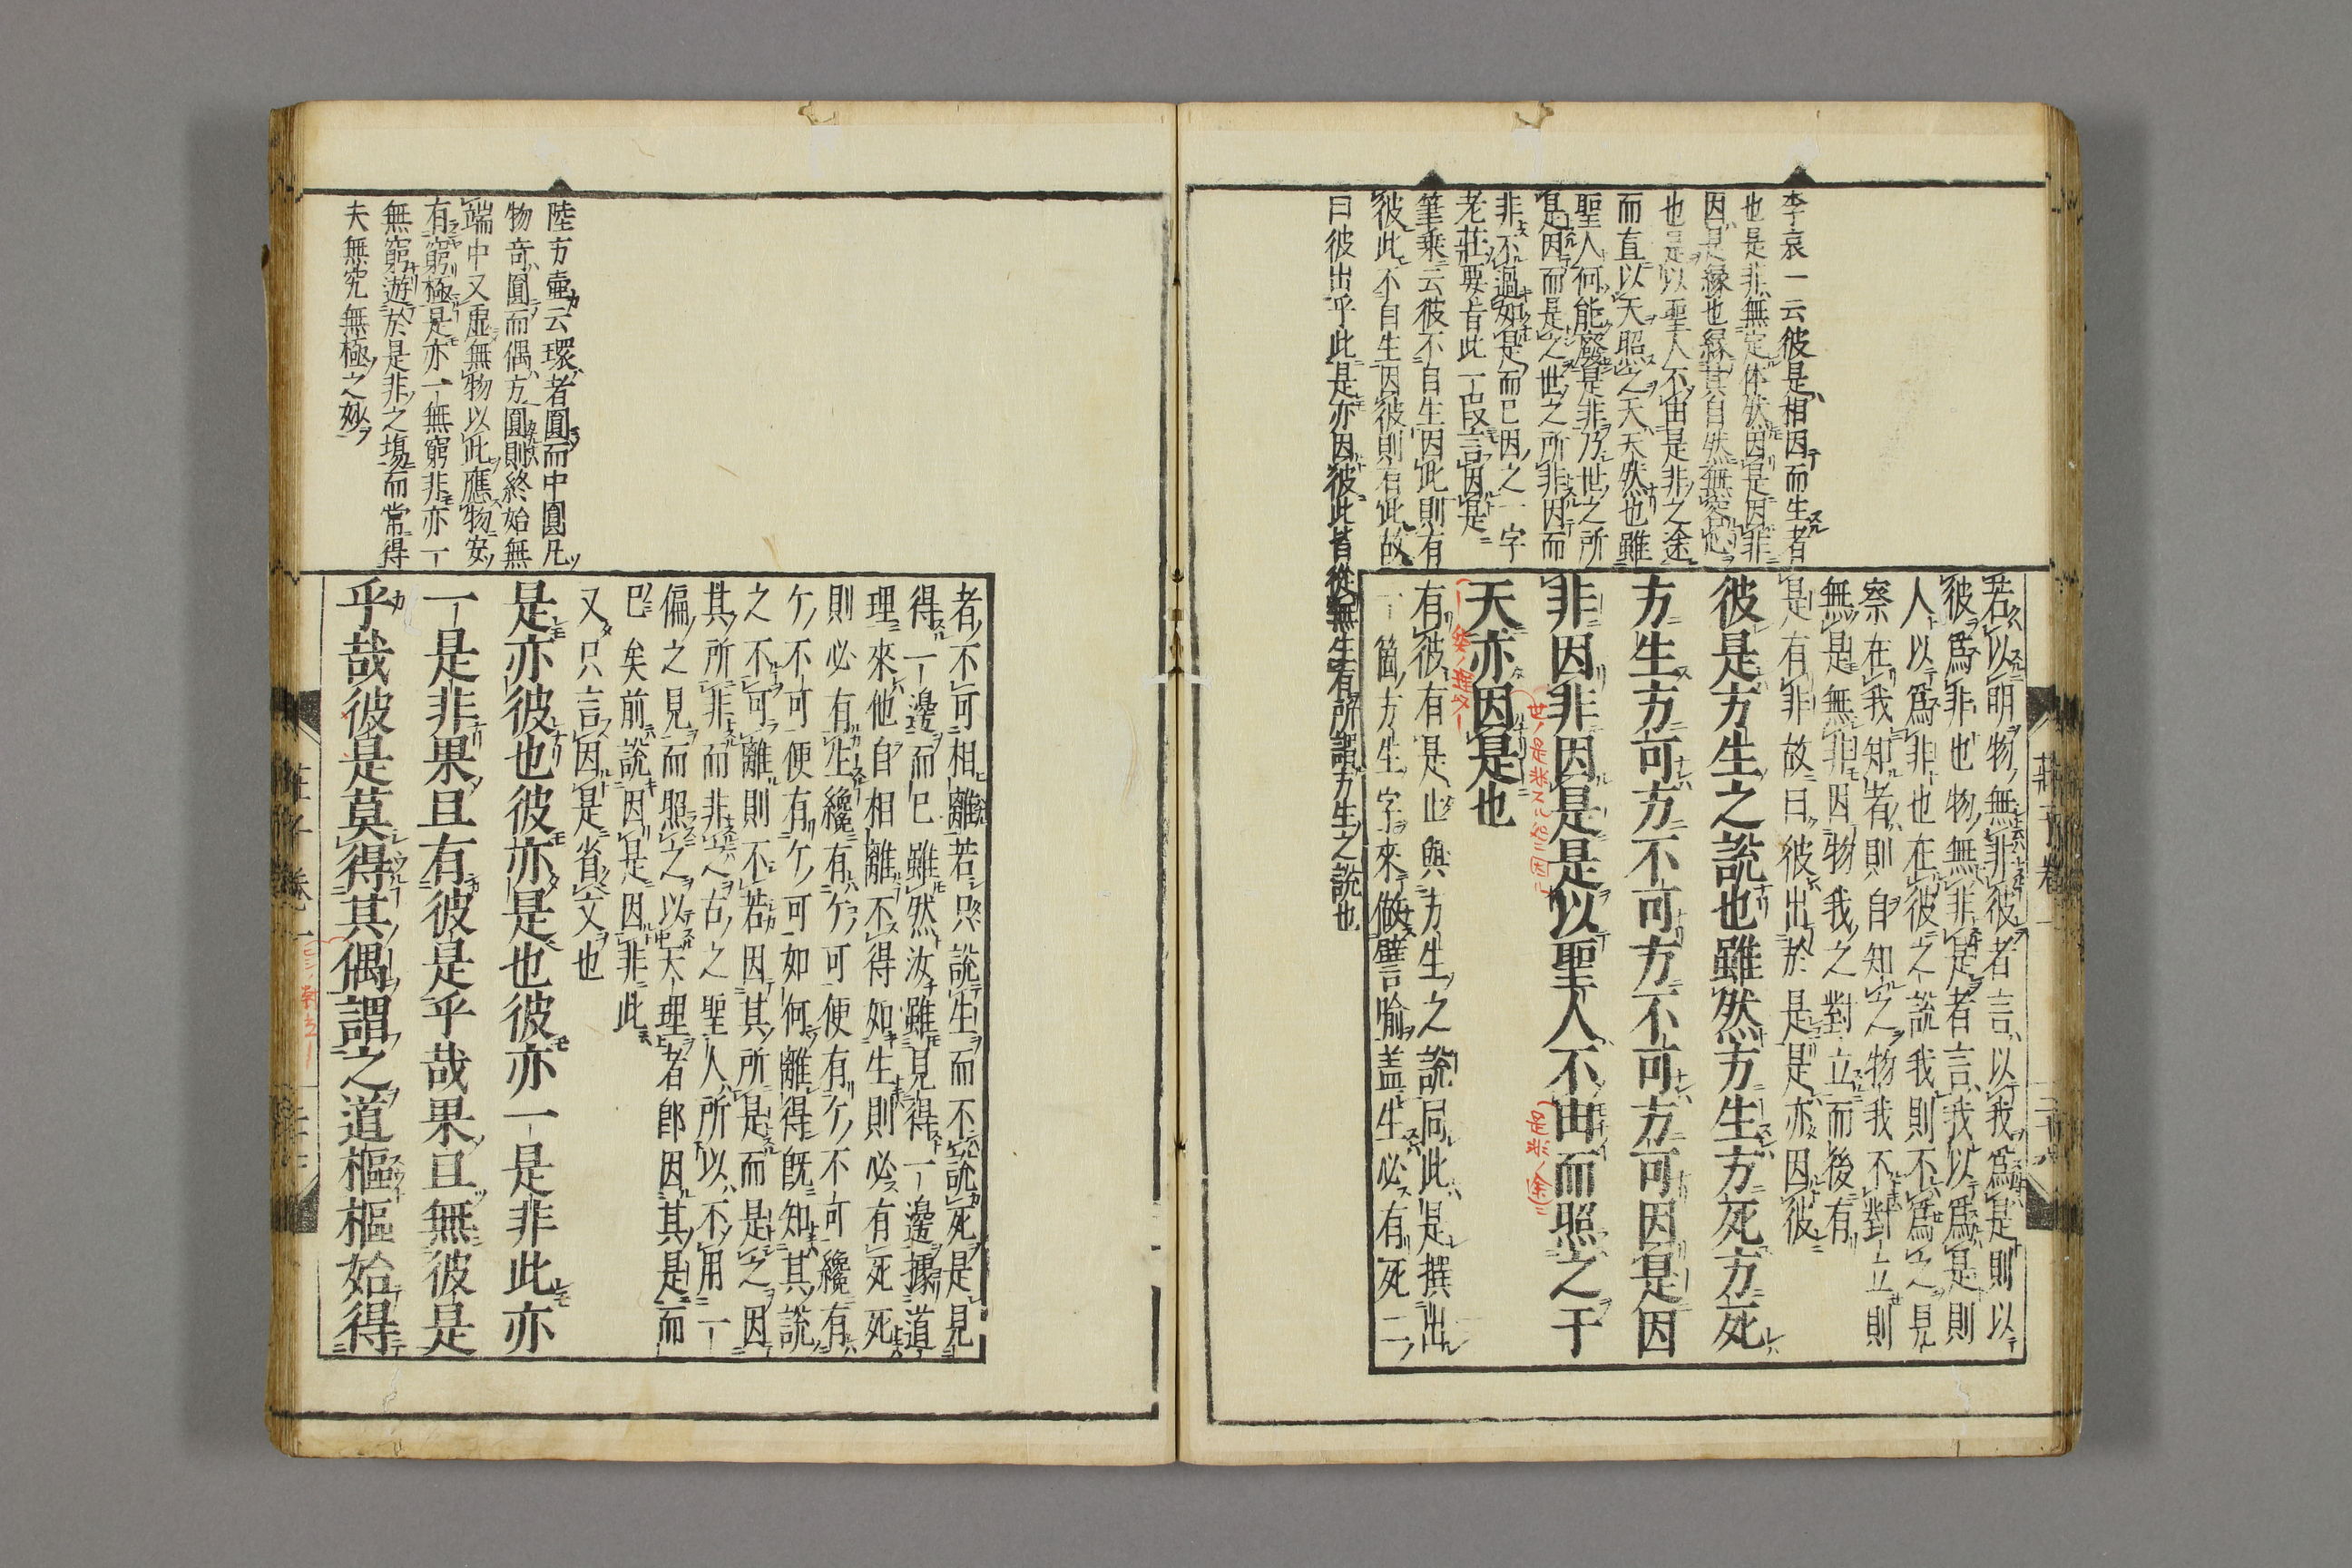 李哀一云彼是相因而生者
也是非無定体然因是因非
因是緣也緣其自然無容心
也是以聖人不由是非之途
而直以天照之天天然也雖
聖人何能廢是非乃世之所
是因而是之世之所非因而
非不過如是而已因之一字
老莊要旨此一段言因是
筆乘云彼不自生因此則有
彼此不自生因彼則右此故
曰彼出乎此是亦因彼此皆從無生有所謂方生之說也
若以明物無非彼者言以我爲是則以
彼爲非也物無非是者言我以爲是則
人以爲非也在彼之說我則不爲之見
察在我知者則自知之物我不對立則
無是無非因物我之對立而後有
是有非故曰彼出於是是亦因彼
彼是方生之說也雖然方生方死方死
方生方可方不可方不可方可因是因
非因非因是是以聖人不由而照之于
天亦因是也
有彼有是也與方生之說同此是撰出
一箇方生字來做譬喻蓋生必有死二
莊子卷一
二十八
者不可相離若只說生而不說死是見
得一邊而已雖然汝雖見得一邊據道
理來他自相離不得如生則必有死死
則必有生纔有个可便有个不可纔有
个不可便有个可如何離得旣知其說
之不可離則不若因其所是而是之因
其所非而非之古之聖人所以不用一
偏之見而照之以天理者郎因其是而
已矣前說因是因非此
又只言因是省文也
是亦彼也彼亦是也彼亦一是非此亦
一是非果且有彼是乎哉果且無彼是
乎哉彼是莫得其偶謂之道樞樞始得
陸方壺云環者圓而中圓凡
物奇圓而偶方圓則終始無
端中又虛無物以此應物安
有窮極是亦一無窮非亦一
無窮遊於是非之場而常得
夫無究無極之妙
莊子卷一